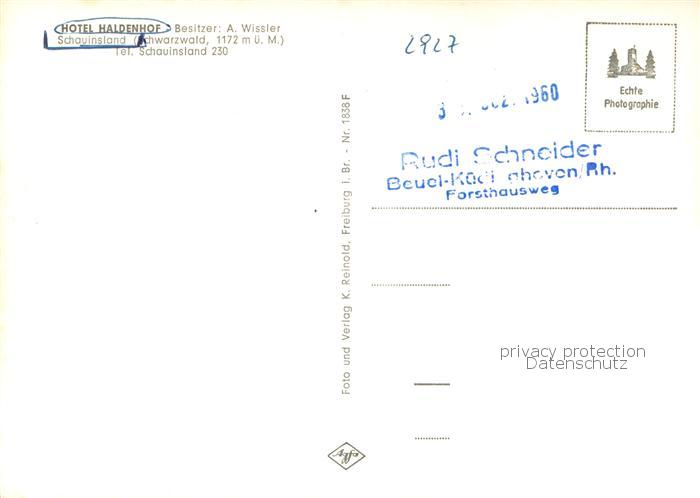 HOTEL HALDENHOF Besitzer: A. Wissler
Schauinsland (Schwarzwald, 1172 m ü. M.)
Tel. Schauinsland 230
2927
1960
Echte
Photographie
Rudi Schneider
Forsthausweg
Foto und Verlag K. Reinold, Freiburg i. Br. - Nr. 1838 F
privacy protection
Datenschutz
Agfa